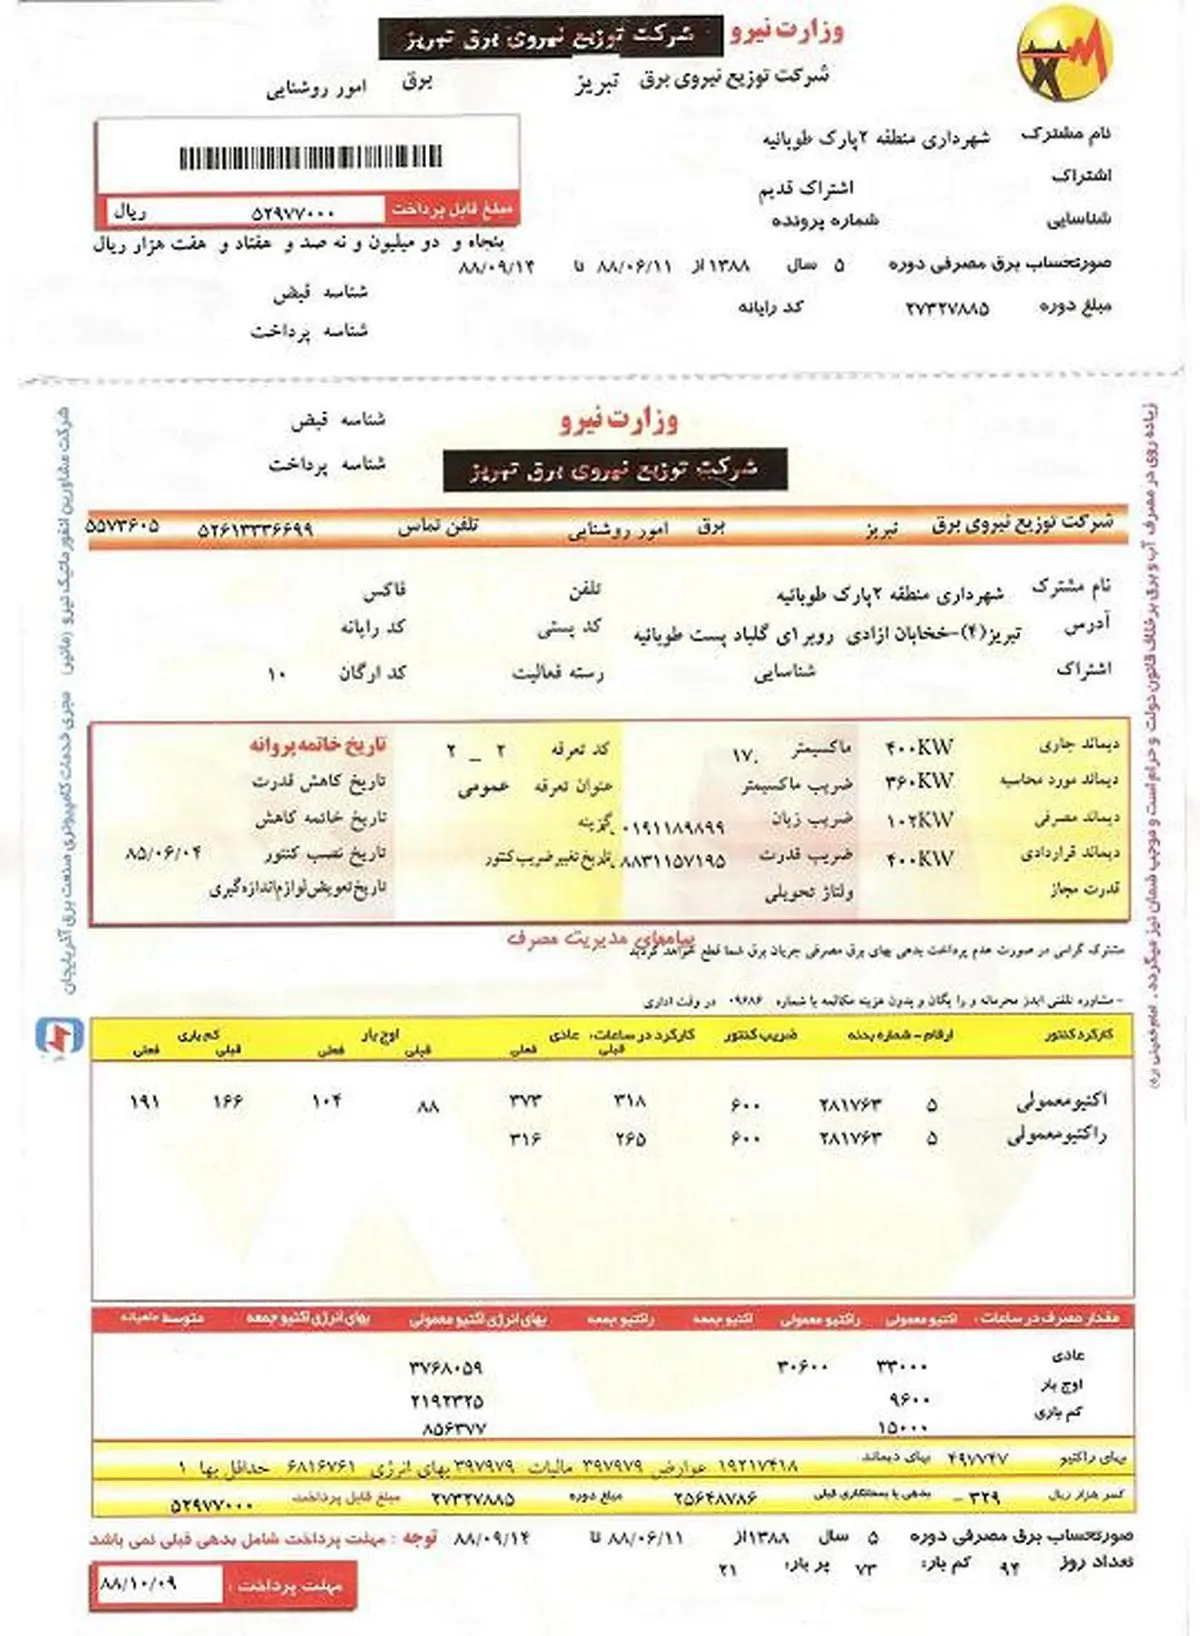 وزارت نیرو شرکت توزیع نیروی برق تبریز
شرکت توزیع نیروی برق تبریز برق امور روشنایی
نام مشترک شهرداری منطقه ۲پارک طوبائیه
اشتراک اشتراک قدیم
مبلغ قابل پرداخت ۵۲۹۷۷۰۰۰ ریال
شناسایی شماره پرونده
پنجاه و دو میلیون و نه صد و هفتاد و هفت هزار ریال
صورتحساب برق مصرفی دوره ۵ سال ۱۳۸۸ از ۸۸/۰۶/۱۱ تا ۸۸/۰۹/۱۴
شناسه قبض
مبلغ دوره ۲۷۳۲۷۸۸۵ کد رایانه
شناسه پرداخت
وزارت نیرو شناسه قبض
شرکت توزیع نیروی برق تبریز شناسه پرداخت
شرکت توزیع نیروی برق تبریز برق امور روشنایی ۵۲۶۱۳۳۳۶۶۹۹ تلفن تماس ۵۵۷۳۶۰۵
نام مشترک شهرداری منطقه ۲پارک طوبائیه تلفن فاکس
آدرس تبریز(۴)-خخابان ازادی روبر ای گلباد پست طوبائیه کد پستی کد رایانه
اشتراک شناسایی رسته فعالیت کد ارگان ۱۰
دیماند جاری ۴۰۰KW ماکسیمتر ۱۷. کد تعرفه ۲ _ ۲ تاریخ خاتمه پروانه
دیماند مورد محاسبه ۳۶۰KW ضریب ماکسیمتر عنوان تعرفه عمومی تاریخ کاهش قدرت
دیماند مصرفی ۱۰۲KW ضریب زیان .۰۱۹۱۱۸۹۸۹۹ گزینه تاریخ خاتمه کاهش
دیماند قراردادی ۴۰۰KW ضریب قدرت .۸۸۳۱۱۵۷۱۹۵ تاریخ تغییر ضریب کنتور تاریخ نصب کنتور ۸۵/۰۶/۰۴
قدرت مجاز ولتاژ تحویلی تاریخ تعویض لوازم اندازه گیری
پیامهای مدیریت مصرف
مشترک گرامی در صورت عدم پرداخت بدهی بهای برق مصرفی جریان برق شما قطع خواهد گردید
- مشاوره تلفنی ایدز محرمانه و رایگان و بدون هزینه مکالمه با شماره ۰۹۶۸۶ در وقت اداری
کارکرد کنتور ارقام - شماره بدنه ضریب کنتور کارکرد در ساعات: عادی اوج بار کم باری
قبلی فعلی قبلی فعلی قبلی فعلی
اکتیو معمولی ۵ ۲۸۱۷۶۳ ۶۰۰ ۳۱۸ ۳۷۳ ۸۸ ۱۰۴ ۱۶۶ ۱۹۱
راکتیو معمولی ۵ ۲۸۱۷۶۳ ۶۰۰ ۲۶۵ ۳۱۶
مقدار مصرف در ساعات : اکتیو معمولی راکتیو معمولی اکتیو جمعه راکتیو جمعه بهای انرژی اکتیو معمولی بهای انرژی اکتیو جمعه متوسط ماهیانه
عادی ۳۳۰۰۰ ۳۰۶۰۰ ۳۷۶۸۰۵۹
اوج بار ۹۶۰۰ ۲۱۹۲۳۲۵
کم باری ۱۵۰۰۰ ۸۵۶۳۷۷
بهای راکتیو ۴۹۷۷۴۷ بهای دیماند ۱۹۲۱۷۴۱۸ عوارض ۳۹۷۹۷۹ مالیات ۳۹۷۹۷۹ بهای انرژی ۶۸۱۶۷۶۱ حداقل بها ۱
کسر هزار ریال ۳۲۹ - بدهی یا بستانکاری قبلی ۲۵۶۴۸۷۸۶ مبلغ دوره ۲۷۳۲۷۸۸۵ مبلغ قابل پرداخت ۵۲۹۷۷۰۰۰
صورتحساب برق مصرفی دوره ۵ سال ۱۳۸۸از ۸۸/۰۶/۱۱ تا ۸۸/۰۹/۱۴ توجه : مهلت پرداخت شامل بدهی قبلی نمی باشد
تعداد روز ۹۴ کم بار: ۷۳ پر بار: ۲۱
مهلت پرداخت : ۸۸/۱۰/۰۹
زیاده روی در مصرف آب و برق بر خلاف قانون دولت و حرام است و موجب ضمان نیز میگردد . امام خمینی (ره)
شرکت مشاورین انفورماتیک نیرو (مانیر) مجری خدمات کامپیوتری صنعت برق آذربایجان